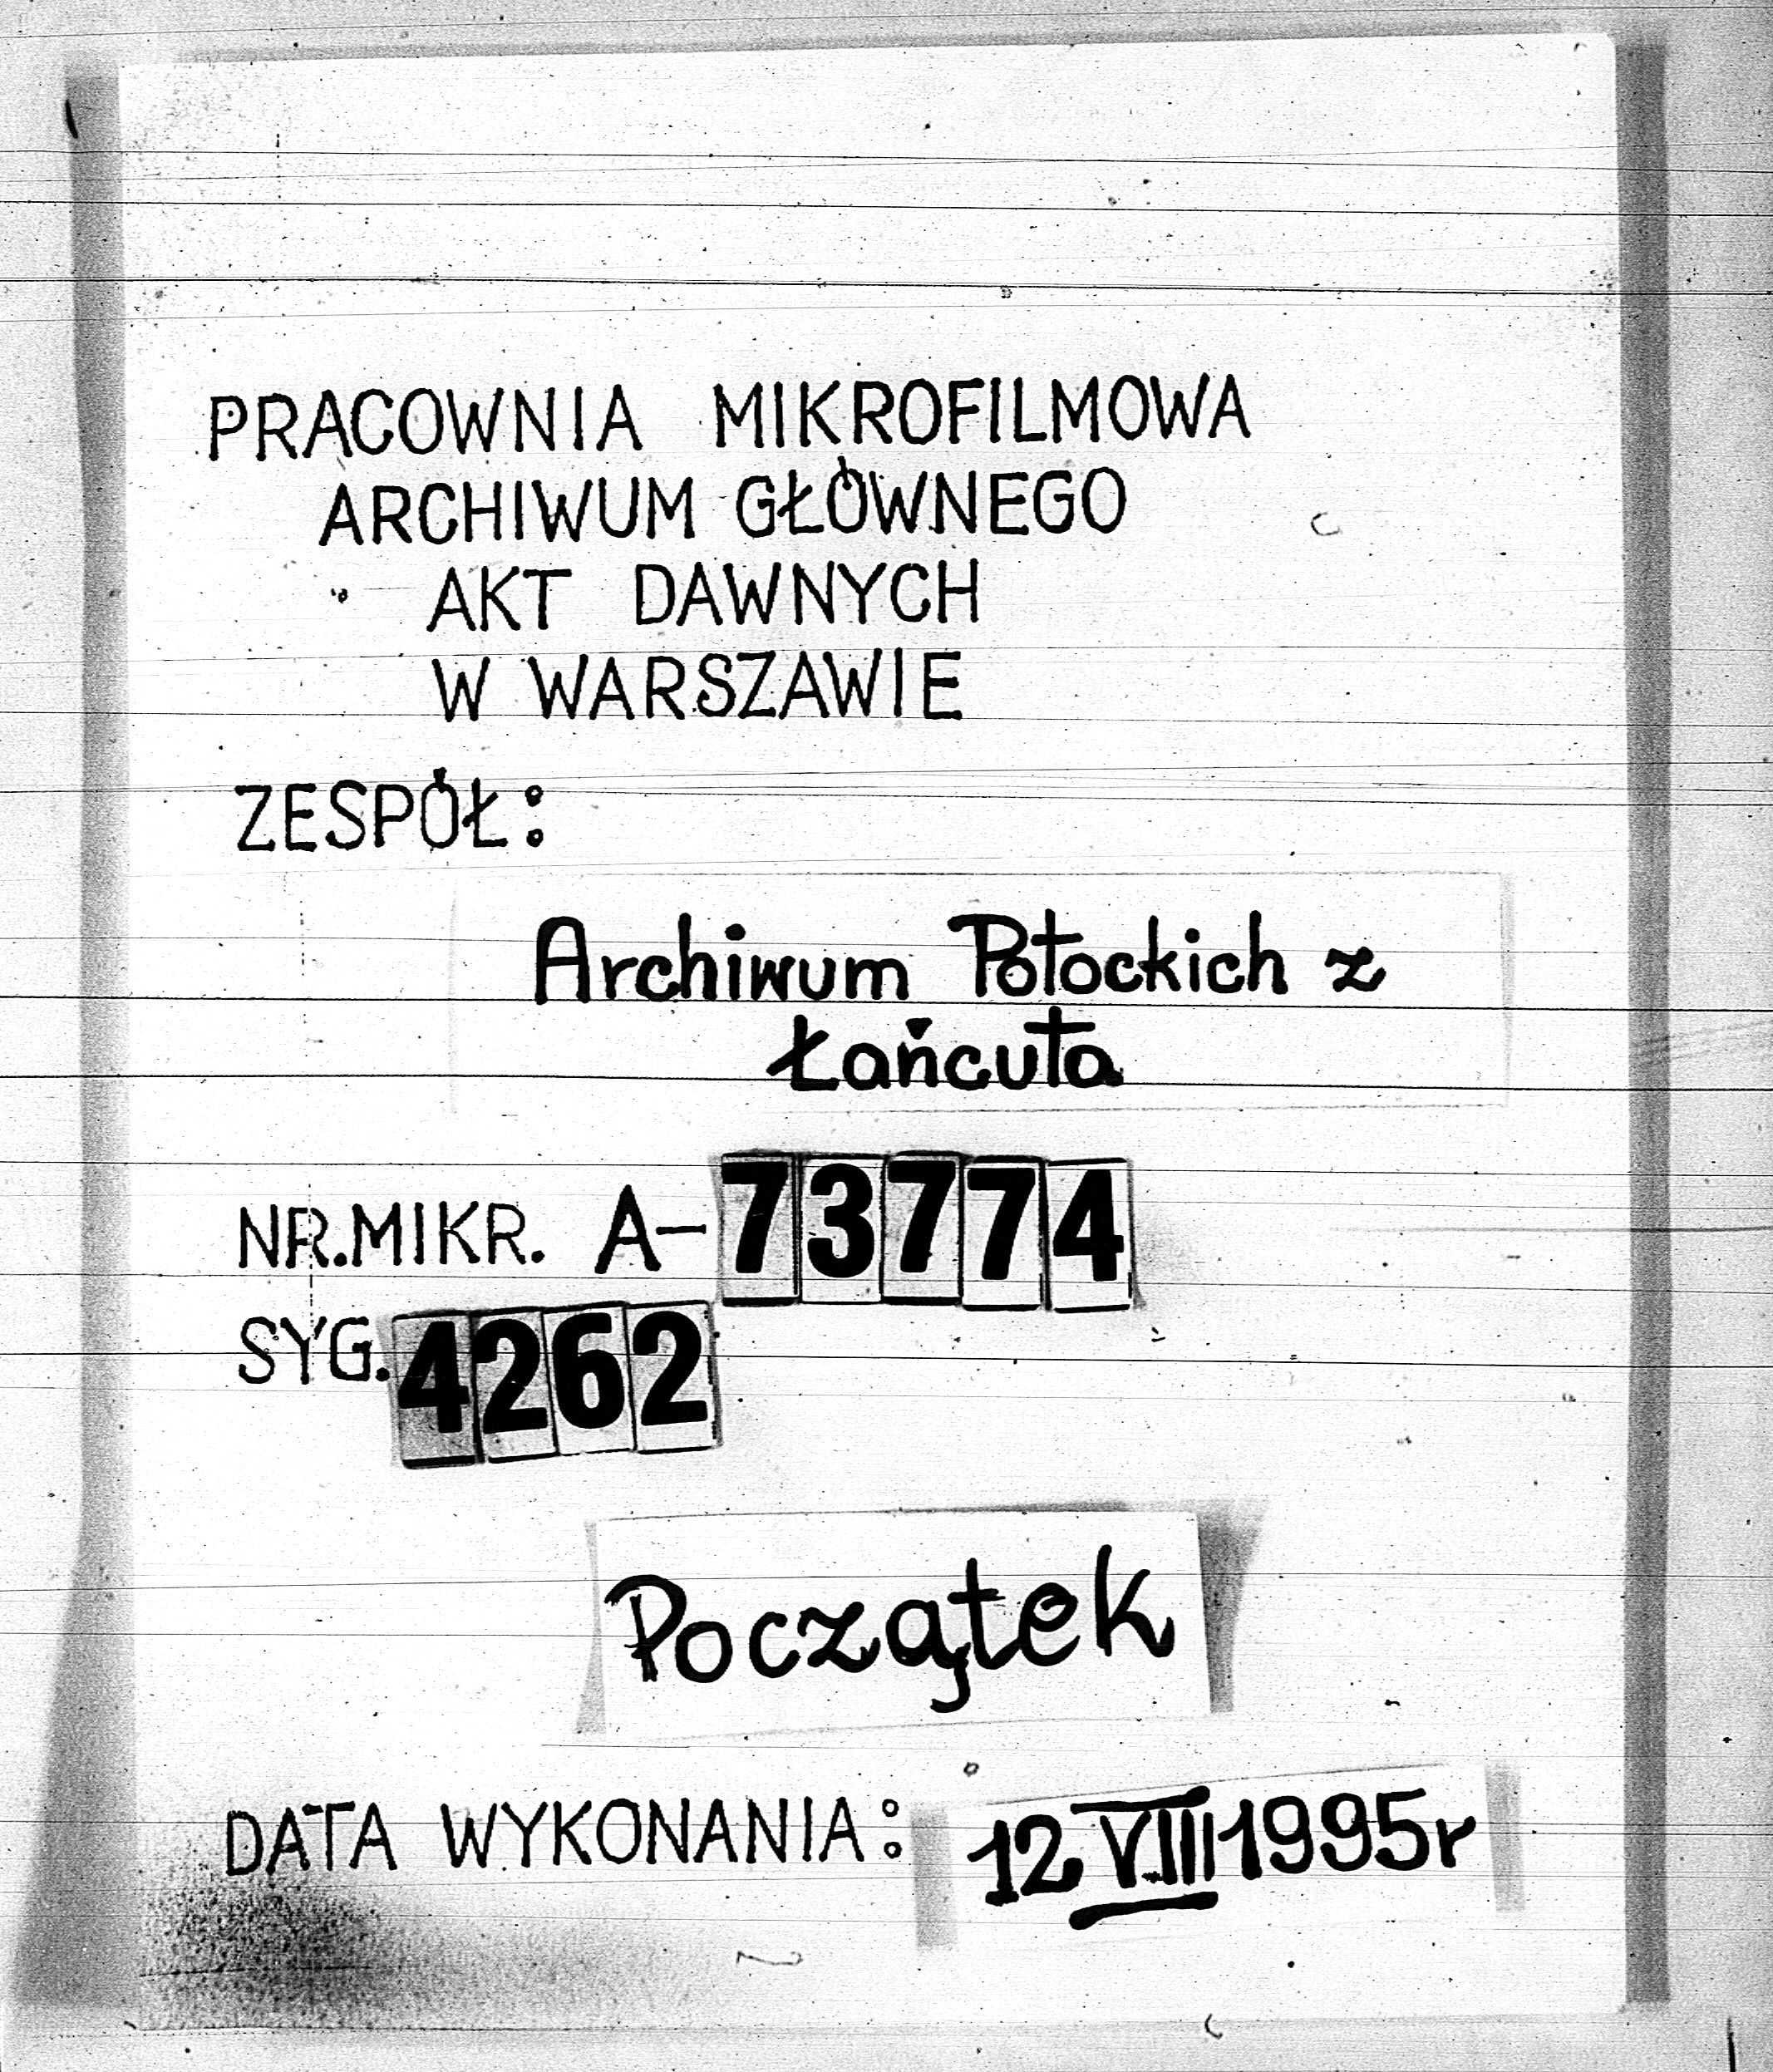 PRACOWNIA MIKROFILMOWA
ARCHIWUM GŁÓWNEGO
AKT DAWNYCH
W WARSZAWIE
ZESPÓŁ:
Archiwum Potockich z
Łańcuta
NR.MIKR. A-73774
SYG. 4262
Początek
DATA WYKONANIA: 12 VIII 1995r